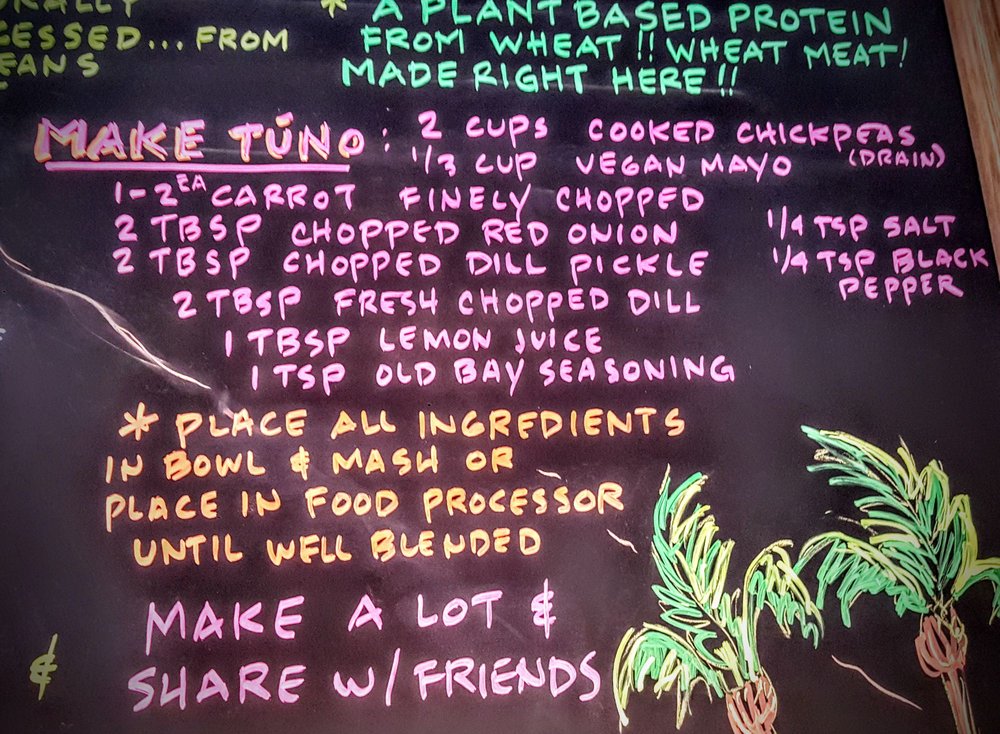 CESSED... FROM
* A PLANT BASED PROTEIN
FROM WHEAT!! WHEAT MEAT!
MADE RIGHT HERE!!
MAKE TŪNO: 2 CUPS COOKED CHICKPEAS
(DRAIN)
1/3 CUP VEGAN MAYO
1-2 EA CARROT FINELY CHOPPED
2 TBSP CHOPPED RED ONION
2 TBSP CHOPPED DILL PICKLE
2 TBSP FRESH CHOPPED DILL
1 TBSP LEMON JUICE
1 TSP OLD BAY SEASONING
1/4 TSP SALT
1/4 TSP BLACK
PEPPER
* PLACE ALL INGREDIENTS
IN BOWL & MASH OR
PLACE IN FOOD PROCESSOR
UNTIL WELL BLENDED
MAKE A LOT &
SHARE W/ FRIENDS
&